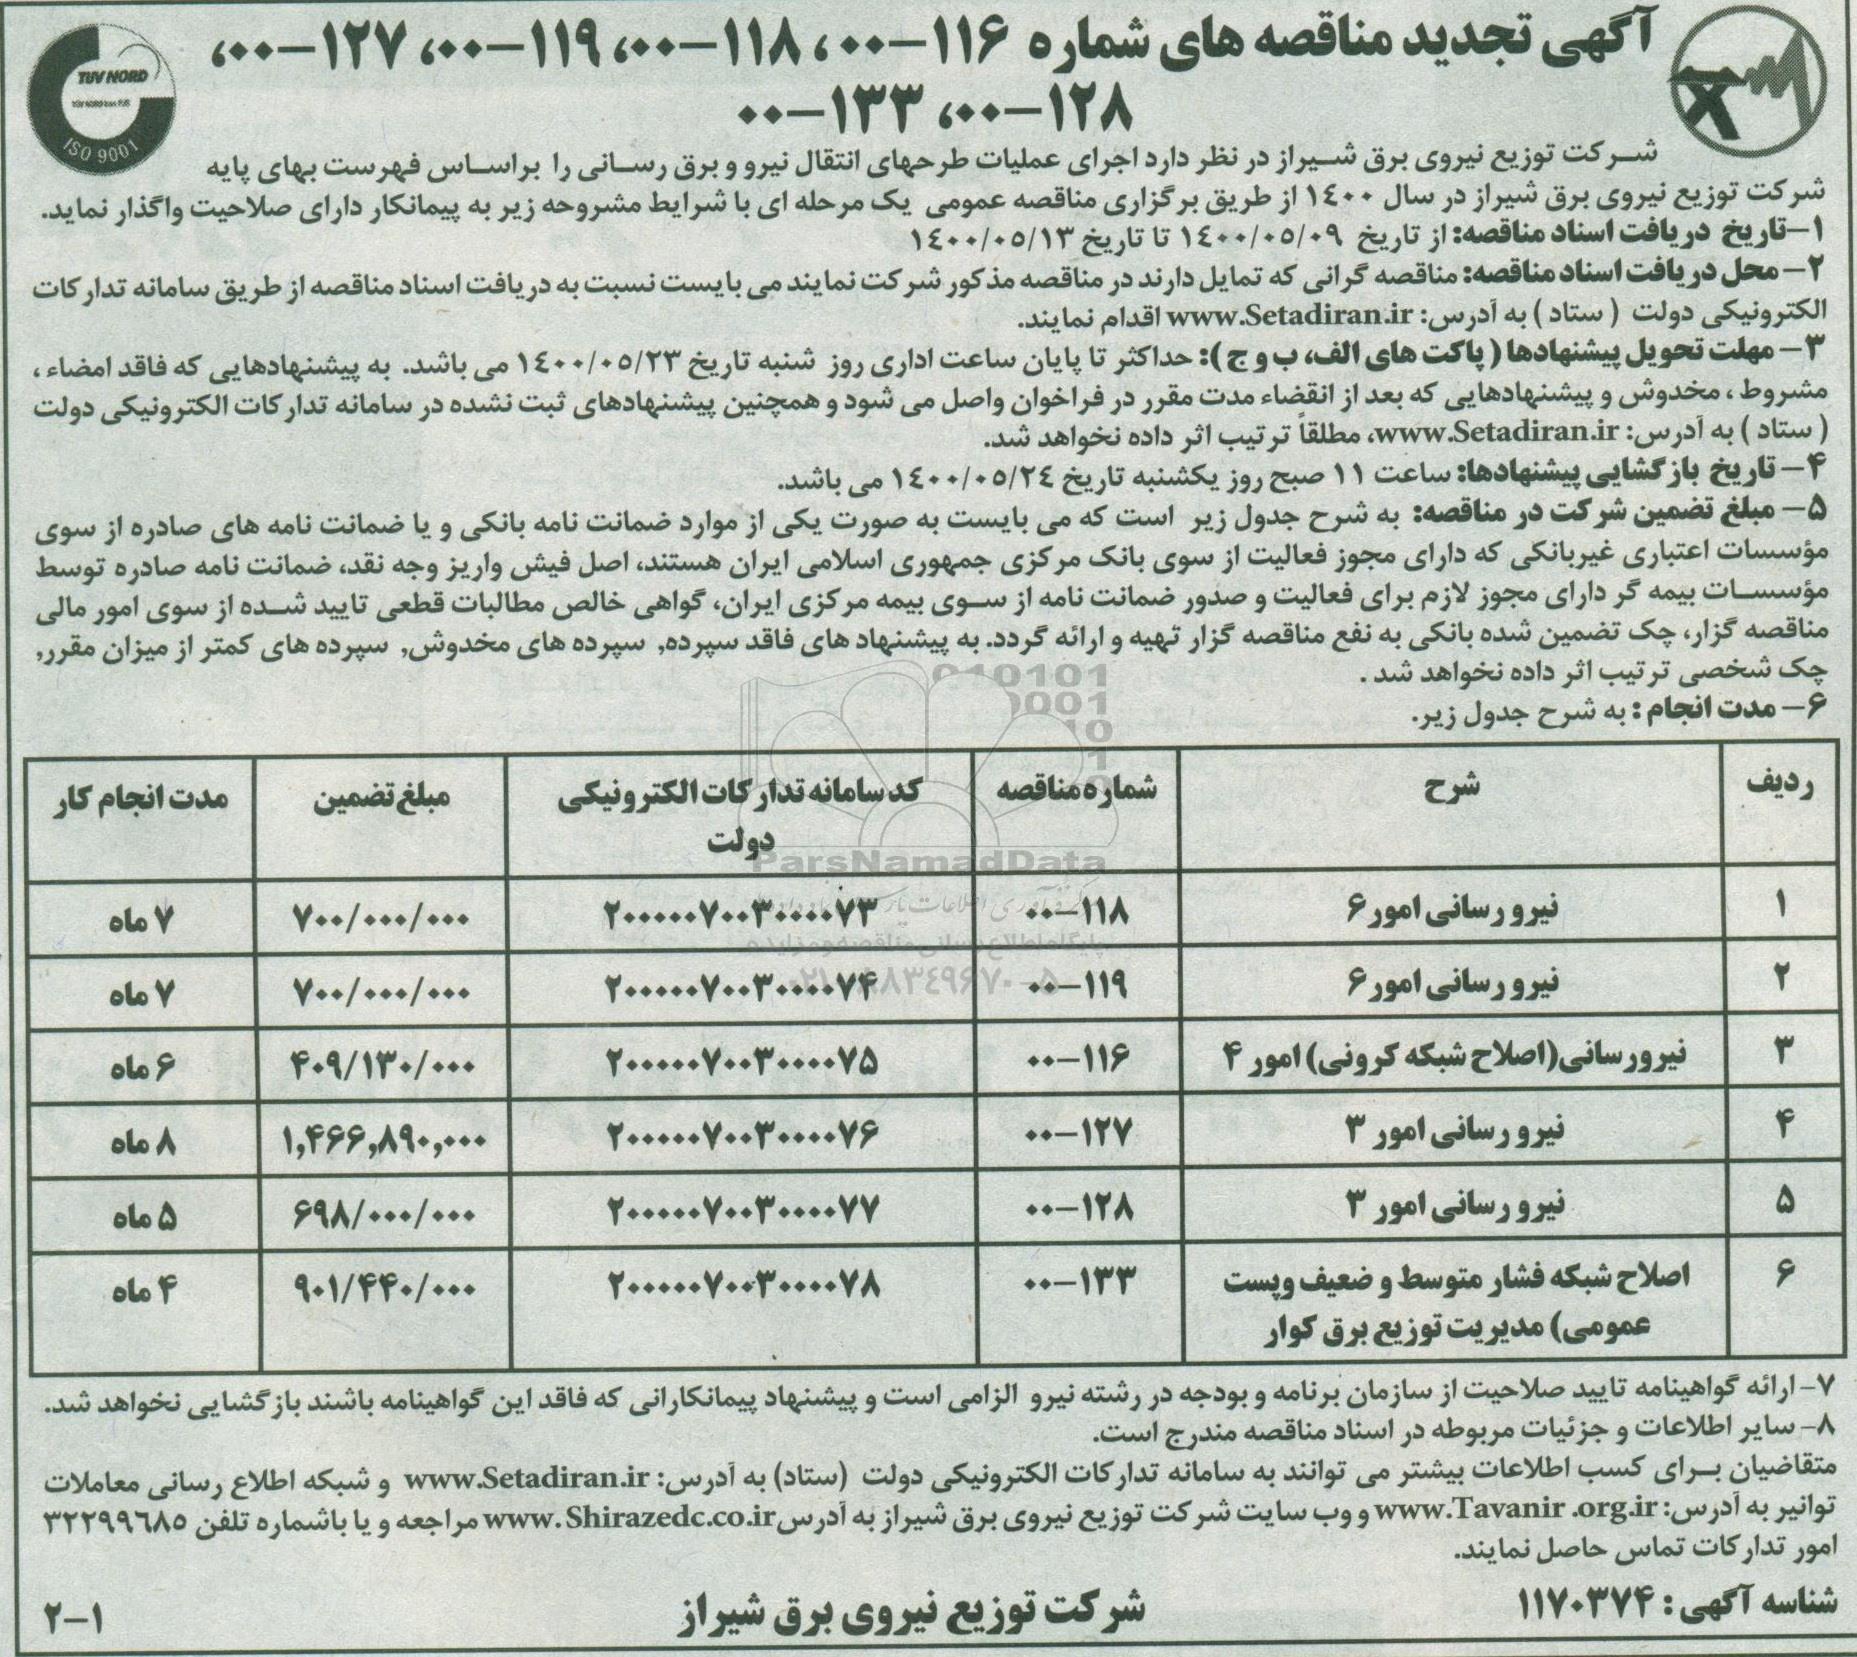 آگهی تجدید مناقصه های شماره ۱۱۶-۰۰، ۱۱۸-۰۰، ۱۱۹-۰۰، ۱۲۷-۰۰،
۱۲۸-۰۰، ۱۳۳-۰۰
TUV NORD
ISO 9001
شرکت توزیع نیروی برق شیراز در نظر دارد اجرای عملیات طرحهای انتقال نیرو و برق رسانی را براساس فهرست بهای پایه
شرکت توزیع نیروی برق شیراز در سال ۱۴۰۰ از طریق برگزاری مناقصه عمومی یک مرحله ای با شرایط مشروحه زیر به پیمانکار دارای صلاحیت واگذار نماید.
۱-تاریخ دریافت اسناد مناقصه: از تاریخ ۱۴۰۰/۰۵/۰۹ تا تاریخ ۱۴۰۰/۰۵/۱۳
۲- محل دریافت اسناد مناقصه: مناقصه گرانی که تمایل دارند در مناقصه مذکور شرکت نمایند می بایست نسبت به دریافت اسناد مناقصه از طریق سامانه تدارکات
الکترونیکی دولت ( ستاد ) به آدرس: www.Setadiran.ir اقدام نمایند.
۳- مهلت تحویل پیشنهادها ( پاکت های الف، ب و ج ): حداکثر تا پایان ساعت اداری روز شنبه تاریخ ۱۴۰۰/۰۵/۲۳ می باشد. به پیشنهادهایی که فاقد امضاء ،
مشروط ، مخدوش و پیشنهادهایی که بعد از انقضاء مدت مقرر در فراخوان واصل می شود و همچنین پیشنهادهای ثبت نشده در سامانه تدارکات الکترونیکی دولت
( ستاد ) به آدرس: www.Setadiran.ir، مطلقاً ترتیب اثر داده نخواهد شد.
۴- تاریخ بازگشایی پیشنهادها: ساعت ۱۱ صبح روز یکشنبه تاریخ ۱۴۰۰/۰۵/۲۴ می باشد.
۵- مبلغ تضمین شرکت در مناقصه: به شرح جدول زیر است که می بایست به صورت یکی از موارد ضمانت نامه بانکی و یا ضمانت نامه های صادره از سوی
مؤسسات اعتباری غیربانکی که دارای مجوز فعالیت از سوی بانک مرکزی جمهوری اسلامی ایران هستند، اصل فیش واریز وجه نقد، ضمانت نامه صادره توسط
مؤسسات بیمه گر دارای مجوز لازم برای فعالیت و صدور ضمانت نامه از سوی بیمه مرکزی ایران، گواهی خالص مطالبات قطعی تایید شده از سوی امور مالی
مناقصه گزار، چک تضمین شده بانکی به نفع مناقصه گزار تهیه و ارائه گردد. به پیشنهاد های فاقد سپرده, سپرده های مخدوش, سپرده های کمتر از میزان مقرر,
چک شخصی ترتیب اثر داده نخواهد شد .
۶- مدت انجام : به شرح جدول زیر.
ردیف شرح شماره مناقصه کد سامانه تدارکات الکترونیکی دولت مبلغ تضمین مدت انجام کار
۱ نیرو رسانی امور۶ ۱۱۸-۰۰ ۲۰۰۰۰۰۷۰۰۳۰۰۰۰۷۳ ۷۰۰/۰۰۰/۰۰۰ ۷ ماه
۲ نیرو رسانی امور۶ ۱۱۹-۰۰ ۲۰۰۰۰۰۷۰۰۳۰۰۰۰۷۴ ۷۰۰/۰۰۰/۰۰۰ ۷ ماه
۳ نیرورسانی(اصلاح شبکه کرونی) امور ۴ ۱۱۶-۰۰ ۲۰۰۰۰۰۷۰۰۳۰۰۰۰۷۵ ۴۰۹/۱۳۰/۰۰۰ ۶ ماه
۴ نیرو رسانی امور ۳ ۱۲۷-۰۰ ۲۰۰۰۰۰۷۰۰۳۰۰۰۰۷۶ ۱,۴۶۶,۸۹۰,۰۰۰ ۸ ماه
۵ نیرو رسانی امور ۳ ۱۲۸-۰۰ ۲۰۰۰۰۰۷۰۰۳۰۰۰۰۷۷ ۶۹۸/۰۰۰/۰۰۰ ۵ ماه
۶ اصلاح شبکه فشار متوسط و ضعیف وپست عمومی) مدیریت توزیع برق کوار ۱۳۳-۰۰ ۲۰۰۰۰۰۷۰۰۳۰۰۰۰۷۸ ۹۰۱/۴۴۰/۰۰۰ ۴ ماه
ParsNamadData
پایگاه اطلاع رسانی مناقصه و مزایده
۰۲۱-۸۸۳۴۹۶۷۰-۵
۷- ارائه گواهینامه تایید صلاحیت از سازمان برنامه و بودجه در رشته نیرو الزامی است و پیشنهاد پیمانکارانی که فاقد این گواهینامه باشند بازگشایی نخواهد شد.
۸- سایر اطلاعات و جزئیات مربوطه در اسناد مناقصه مندرج است.
متقاضیان برای کسب اطلاعات بیشتر می توانند به سامانه تدارکات الکترونیکی دولت (ستاد) به آدرس: www.Setadiran.ir و شبکه اطلاع رسانی معاملات
توانیر به آدرس: www.Tavanir .org.ir و وب سایت شرکت توزیع نیروی برق شیراز به آدرس www. Shirazedc.co.ir مراجعه و یا باشماره تلفن ۳۲۲۹۹۶۸۵
امور تدارکات تماس حاصل نمایند.
شناسه آگهی : ۱۱۷۰۳۷۴
شرکت توزیع نیروی برق شیراز
۲-۱